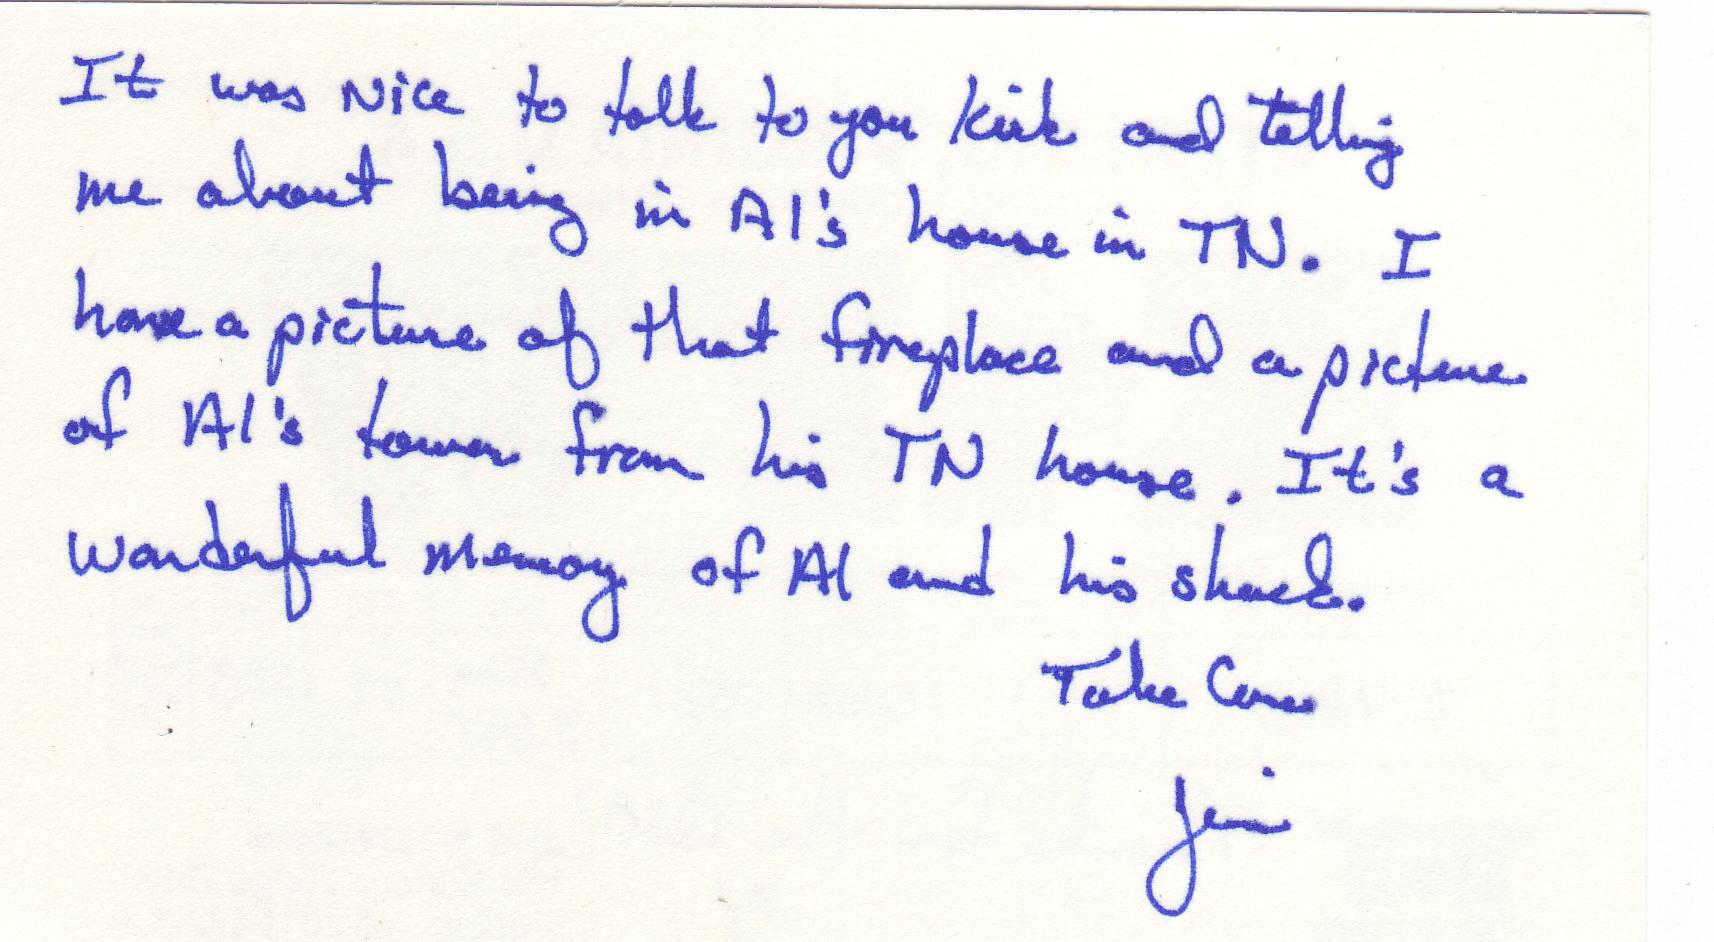 It was Nice to talk to you Kirk and telling
me about being in Al's house in TN. I
have a picture of that fireplace and a picture
of Al's tower from his TN house. It's a
wonderful memory of Al and his shack.
Take Care
Jim